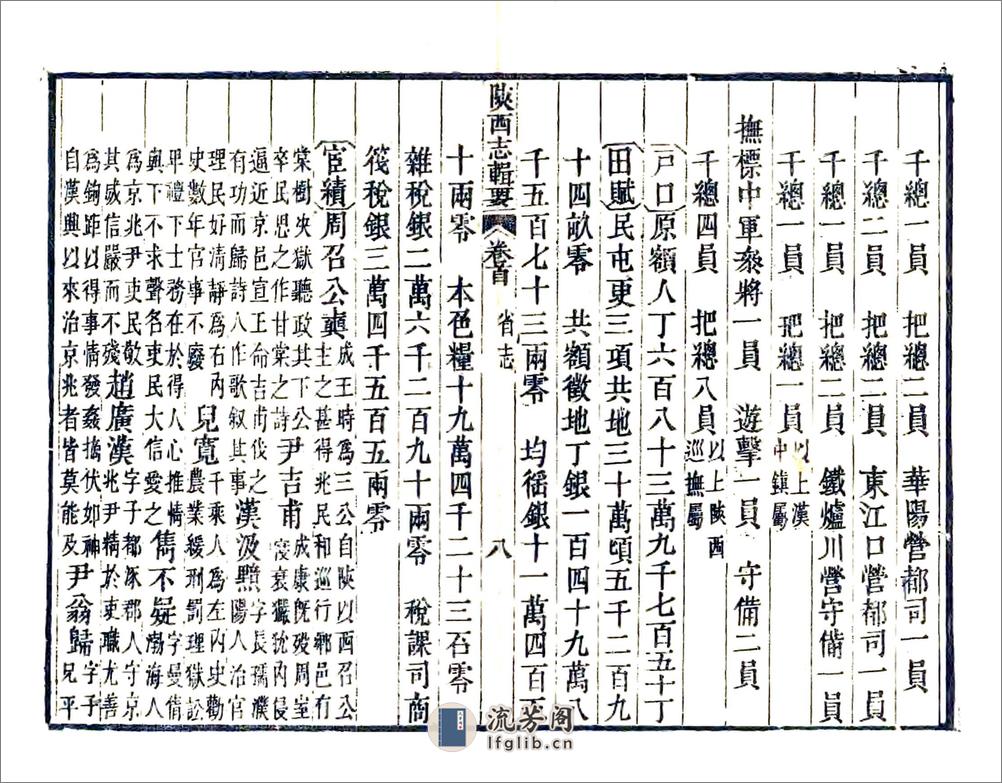 千總一員　把總二員　華陽營都司一員
千總二員　把總二員　東江口營都司一員
千總一員　把總二員　鐵爐川營守備一員
千總一員　把總一員　以上漢中鎮屬
撫標中軍叅將一員　遊擊一員　守備二員
千總四員　把總八員　以上陝西巡撫屬
戶口原額人丁六百八十三萬九千七百五十丁
田賦民屯更三項共地三十萬頃五千二百九
十四畝零　共額徵地丁銀一百四十九萬八
千五百七十三兩零　均徭銀十一萬四百五
陝西志輯要　卷首　省志　八
十兩零　本色糧十九萬四千二十三石零
雜稅銀二萬六千二百九十兩零　稅課司商
筏稅銀三萬四千五百五兩零
宦績周召公奭成王時為三公自陝以西召公主之甚得兆民和巡行鄉邑有
棠樹決獄聽政其下公卒民思之作甘棠之詩尹吉甫成康既歿周室寖衰玁狁內侵
逼近京邑宣王命吉甫伐之有功而歸詩人作歌叙其事漢汲黯字長孺濮陽人治官
理民好清靜為右內史數年官事不廢兒寬千乘人為左內史勸農業緩刑罰理獄訟
卑禮下士務在於得人心推情與下不求聲名吏民大信愛之雋不疑字曼倩渤海人
為京兆尹吏民敬其威信嚴而不殘趙廣漢字子都涿郡人守京兆尹精於吏職尤善
為鉤距以得事情發姦擿伏如神自漢興以來治京兆者皆莫能及尹翁歸字子兄平
流芳阁
lfglib.cn